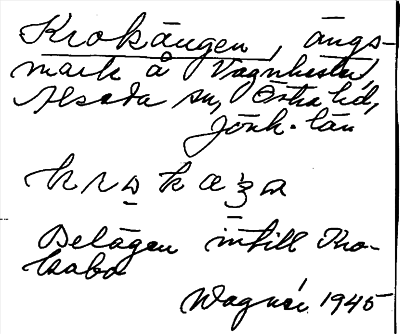 Krokängen, ängs-
mark å Vagnhester,
Alseda sn, Östra hd,
Jönk. län
krokæŋa
Belägen intill Kro-
kabo
Wagnér 1945